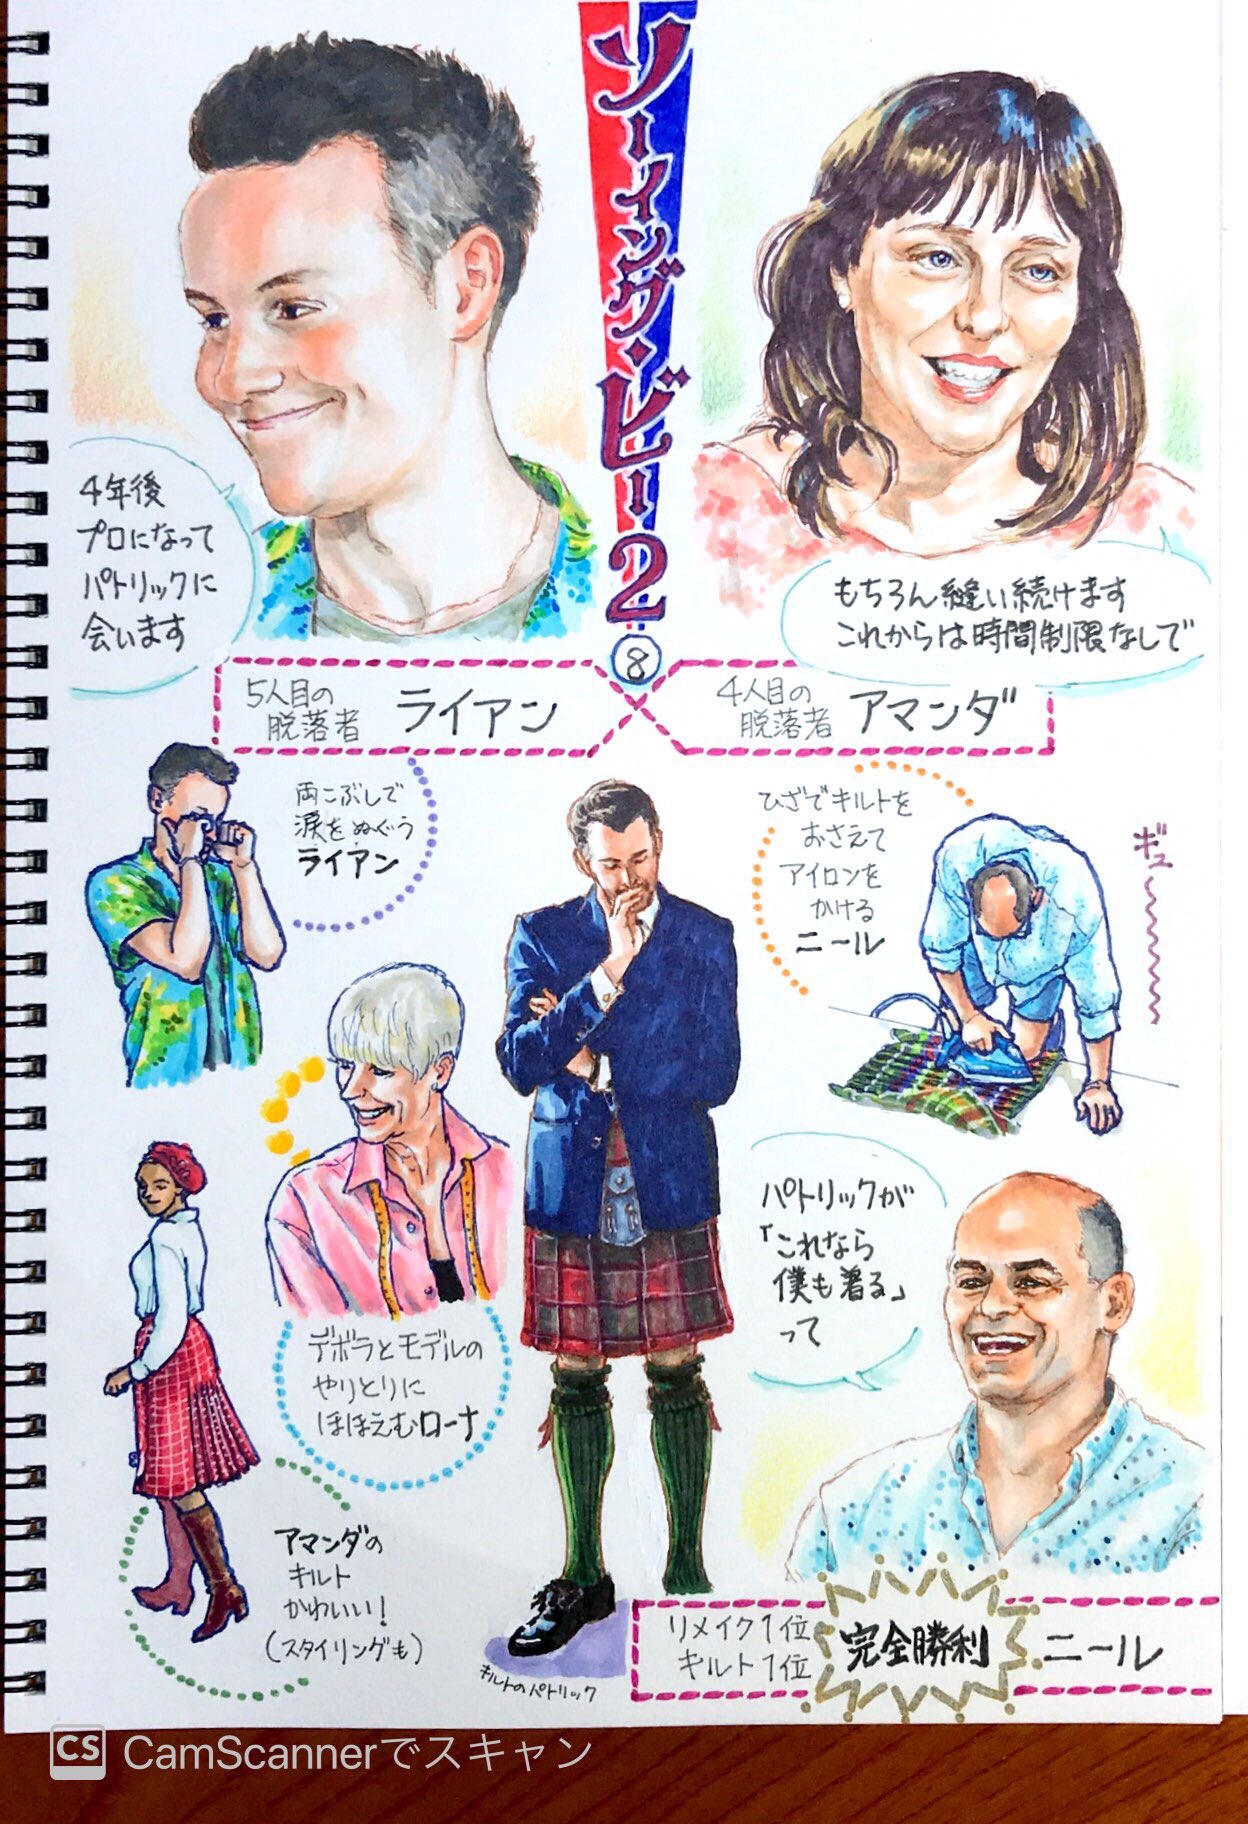 ソーイング・ビー2
⑧
4年後
プロになって
パトリックに
会います
もちろん縫い続けます
これからは時間制限なしで
5人目の
脱落者
ライアン
4人目の
脱落者
アマンダ
両こぶしで
涙をぬぐう
ライアン
ひざでキルトを
おさえて
アイロンを
かける
ニール
ギュ
パトリックが
「これなら
僕も着る」
って
デボラとモデルの
やりとりに
ほほえむローナ
アマンダの
キルト
かわいい!
(スタイリングも)
キルトのパトリック
リメイク1位
キルト1位
完全勝利
ニール
CS CamScannerでスキャン